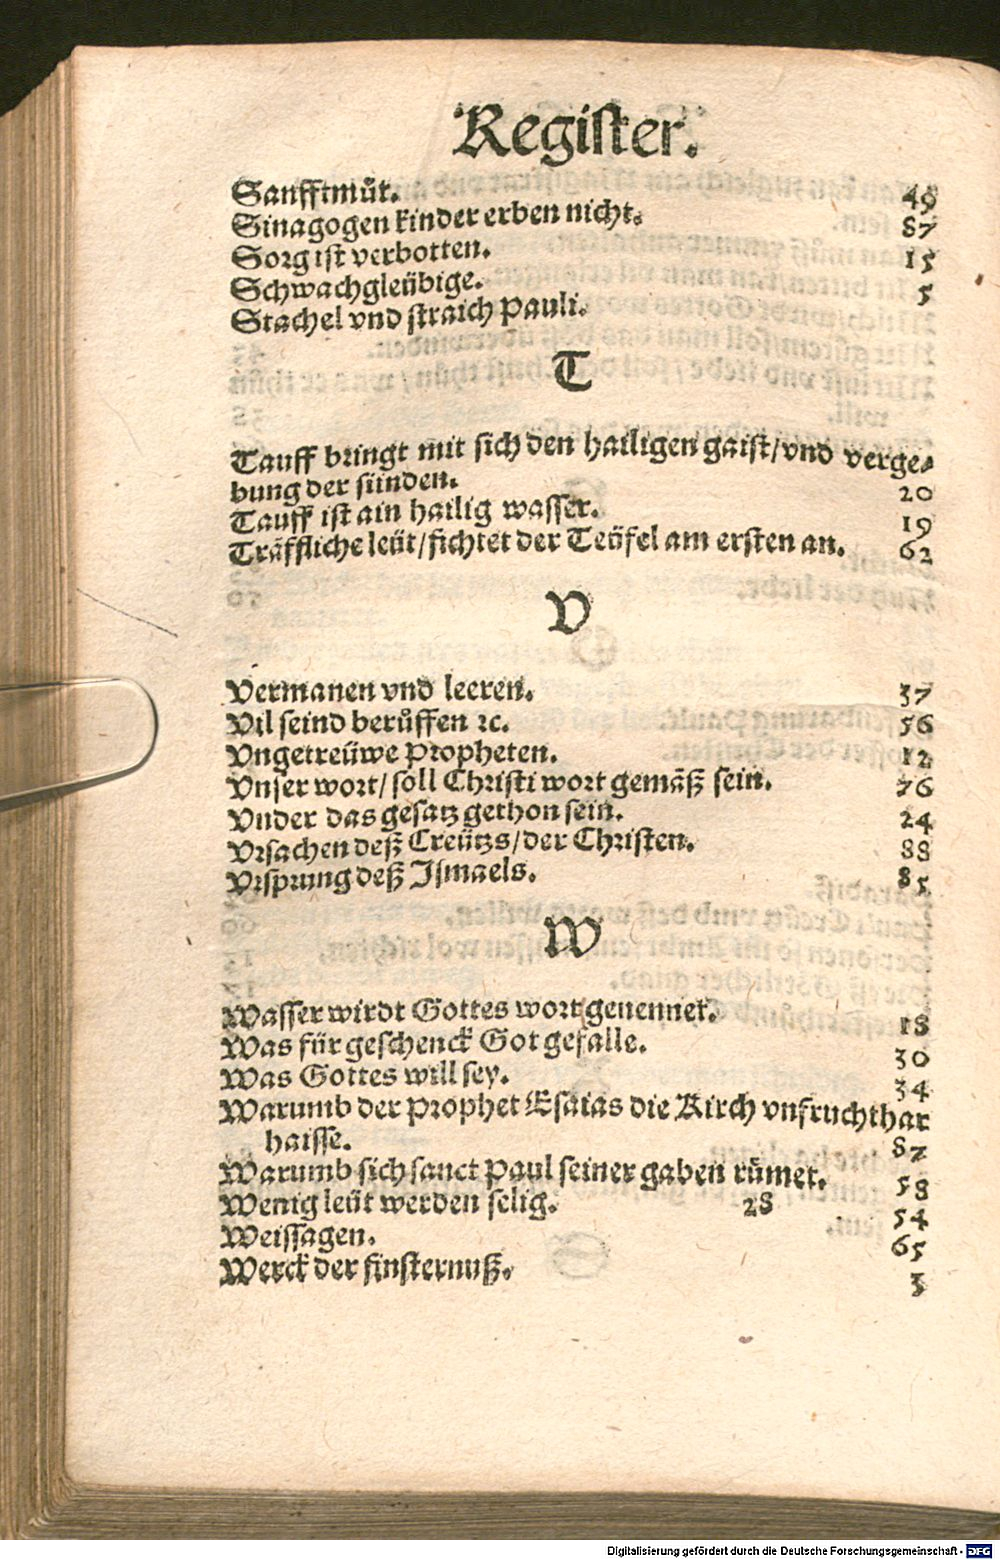 Register.
Sanfftmůt. 49
Sinagogen kinder erben nicht. 87
Sorg ist verbotten. 15
Schwachgleübige. 5
Stachel vnd straich Pauli.
T
Tauff bringt mit sich den hailigen gaist/vnd verge⸗
bung der sünden. 20
Tauff ist ain hailig wasser. 19
Träffliche leüt/fichtet der Teüfel am ersten an. 62
V
Vermanen vnd leeren. 37
Vil seind berůffen ꝛc. 56
Vngetreüwe Propheten. 12
Vnser wort/soll Christi wort gemäß sein. 76
Vnder das gesatz gethon sein. 24
Vrsachen deß Creützs/der Christen. 88
Vrsprung deß Ismaels. 85
W
Wasser wirdt Gottes wort genennet. 18
Was für geschenck Got gefalle. 30
Was Gottes will sey. 34
Warumb der Prophet Esaias die Kirch vnfruchthar
haisse. 87
Warumb sich sanct Paul seiner gaben růmet. 58
Wenig leüt werden selig. 28 54
Weissagen. 65
Werck der finsternuß. 3
Digitalisierung gefördert durch die Deutsche Forschungsgemeinschaft - DFG